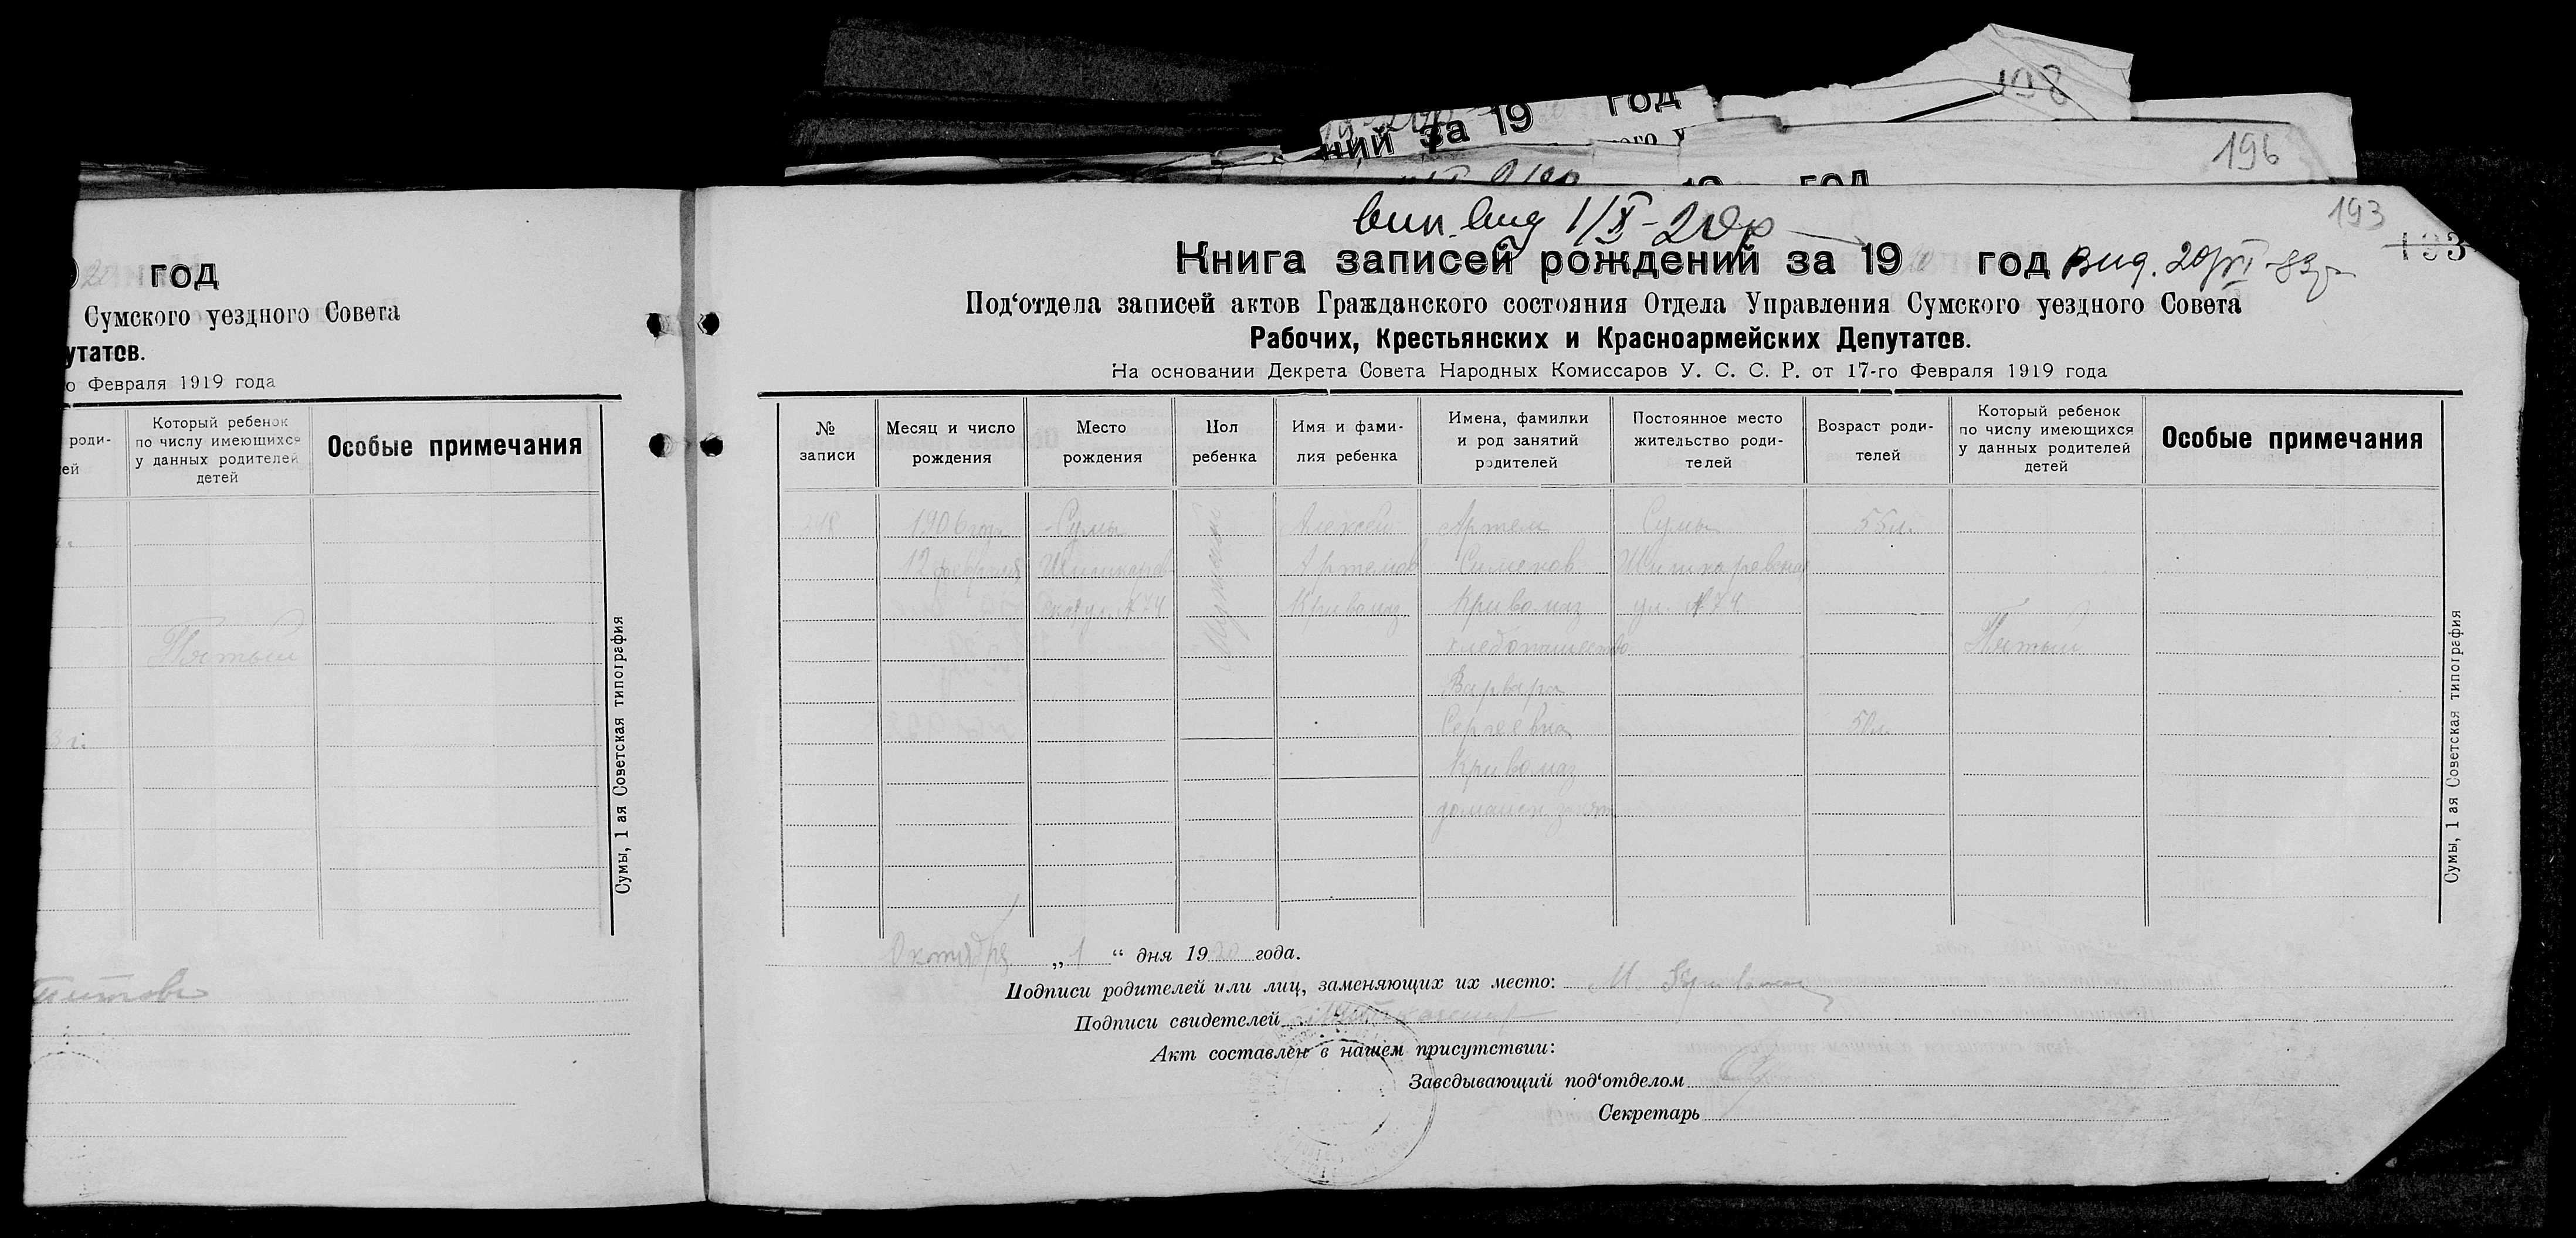 198
ний за 19 год
196
19 год
193
193
вип. вид 1/X-20р
Книга записей рождений за 1920 год вид. 20/VI-83р
Под‘отдела записей актов Гражданского состояния Отдела Управления Сумского уездного Совета
Рабочих, Крестьянских и Красноармейских Депутатов.
На основании Декрета Совета Народных Комиссаров У. С. С. Р. от 17-го Февраля 1919 года
20 год
Сумского уездного Совета
утатов.
о Февраля 1919 года
роди-
ей
Который ребенок
по числу имеющихся
у данных родителей
детей
Особые примечания
Пятый
Сумы, 1 ая Советская типография
№
записи
Месяц и число
рождения
Место
рождения
Пол
ребенка
Имя и фами-
лия ребенка
Имена, фамилии
и род занятий
родителей
Постоянное место
жительство роди-
телей
Возраст роди-
телей
Который ребенок
по числу имеющихся
у данных родителей
детей
Особые примечания
1906 года
12 февраля
Сумы
ул. № 74
Мужской
Алексей
Артемов
Кривомаз
Артем
Симонов
Кривомаз
хлебопашество
Варвара
Сергеевна
Кривомаз
домашн. занят
Сумы
Шишкаревская
ул. № 74
55 л.
50 л.
Пятый
Сумы, 1 ая Советская типография
Октября „1“ дня 1920 года.
Подписи родителей или лиц, заменяющих их место:
Подписи свидетелей
Акт составлен в нашем присутствии:
Заведывающий под‘отделом
Секретарь